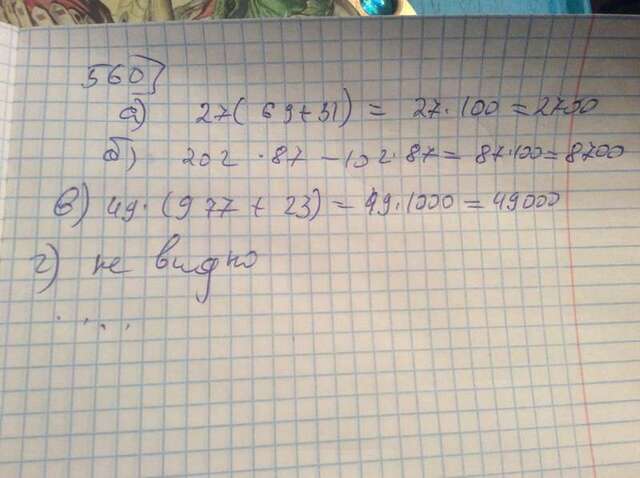 560)
а) 27(69+31) = 27·100 = 2700
б) 202·87 - 102·87 = 87·100 = 8700
в) 49·(977 + 23) = 49·1000 = 49000
г) не видно
....